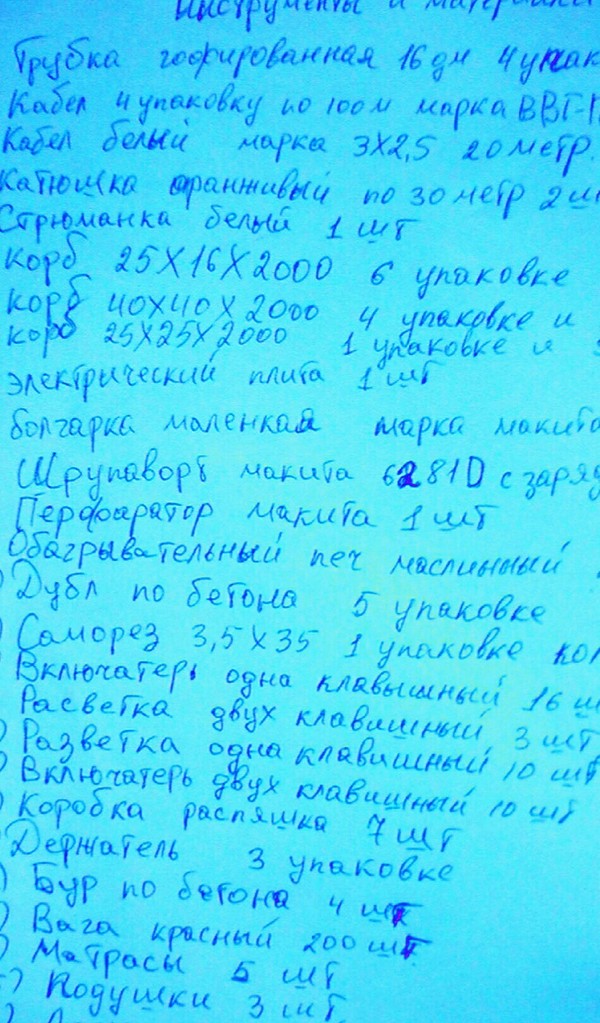 Инструменты и материалы
Трубка гофрированная 16 дм 4 упак
Кабел 4 упаковку по 100 м марка ВВГ-П
Кабел белый марка 3Х2,5 20 метр.
Катюшка оранживый по 30 метр 2 ш
Стрюманка белый 1 шт
корб 25Х16Х2000 6 упаковке
корб 40Х40Х2000 4 упаковке и
корб 25Х25Х2000 1 упаковке и
электрический плита 1 шт
болгарка маленкая марка макита
Шрупаворт макита 6281D с заряд
Перфаратор макита 1 шт
Обагрывательный печ маслинный
) Дубл по бетона 5 упаковке
) Саморез 3,5Х35 1 упаковке кол
Включатерь одна клавышный 16 ш
Расветка двух клавишный 3 шт
) Разветка одна клавишный 10 шт
) Включатерь двух клавишный 10 шт
) Коробка распяшка 7 шт
) Держатель 3 упаковке
) Бур по бетона 4 шт
) Вага красный 200 шт
) Матрасы 5 шт
) Подушки 3 шт